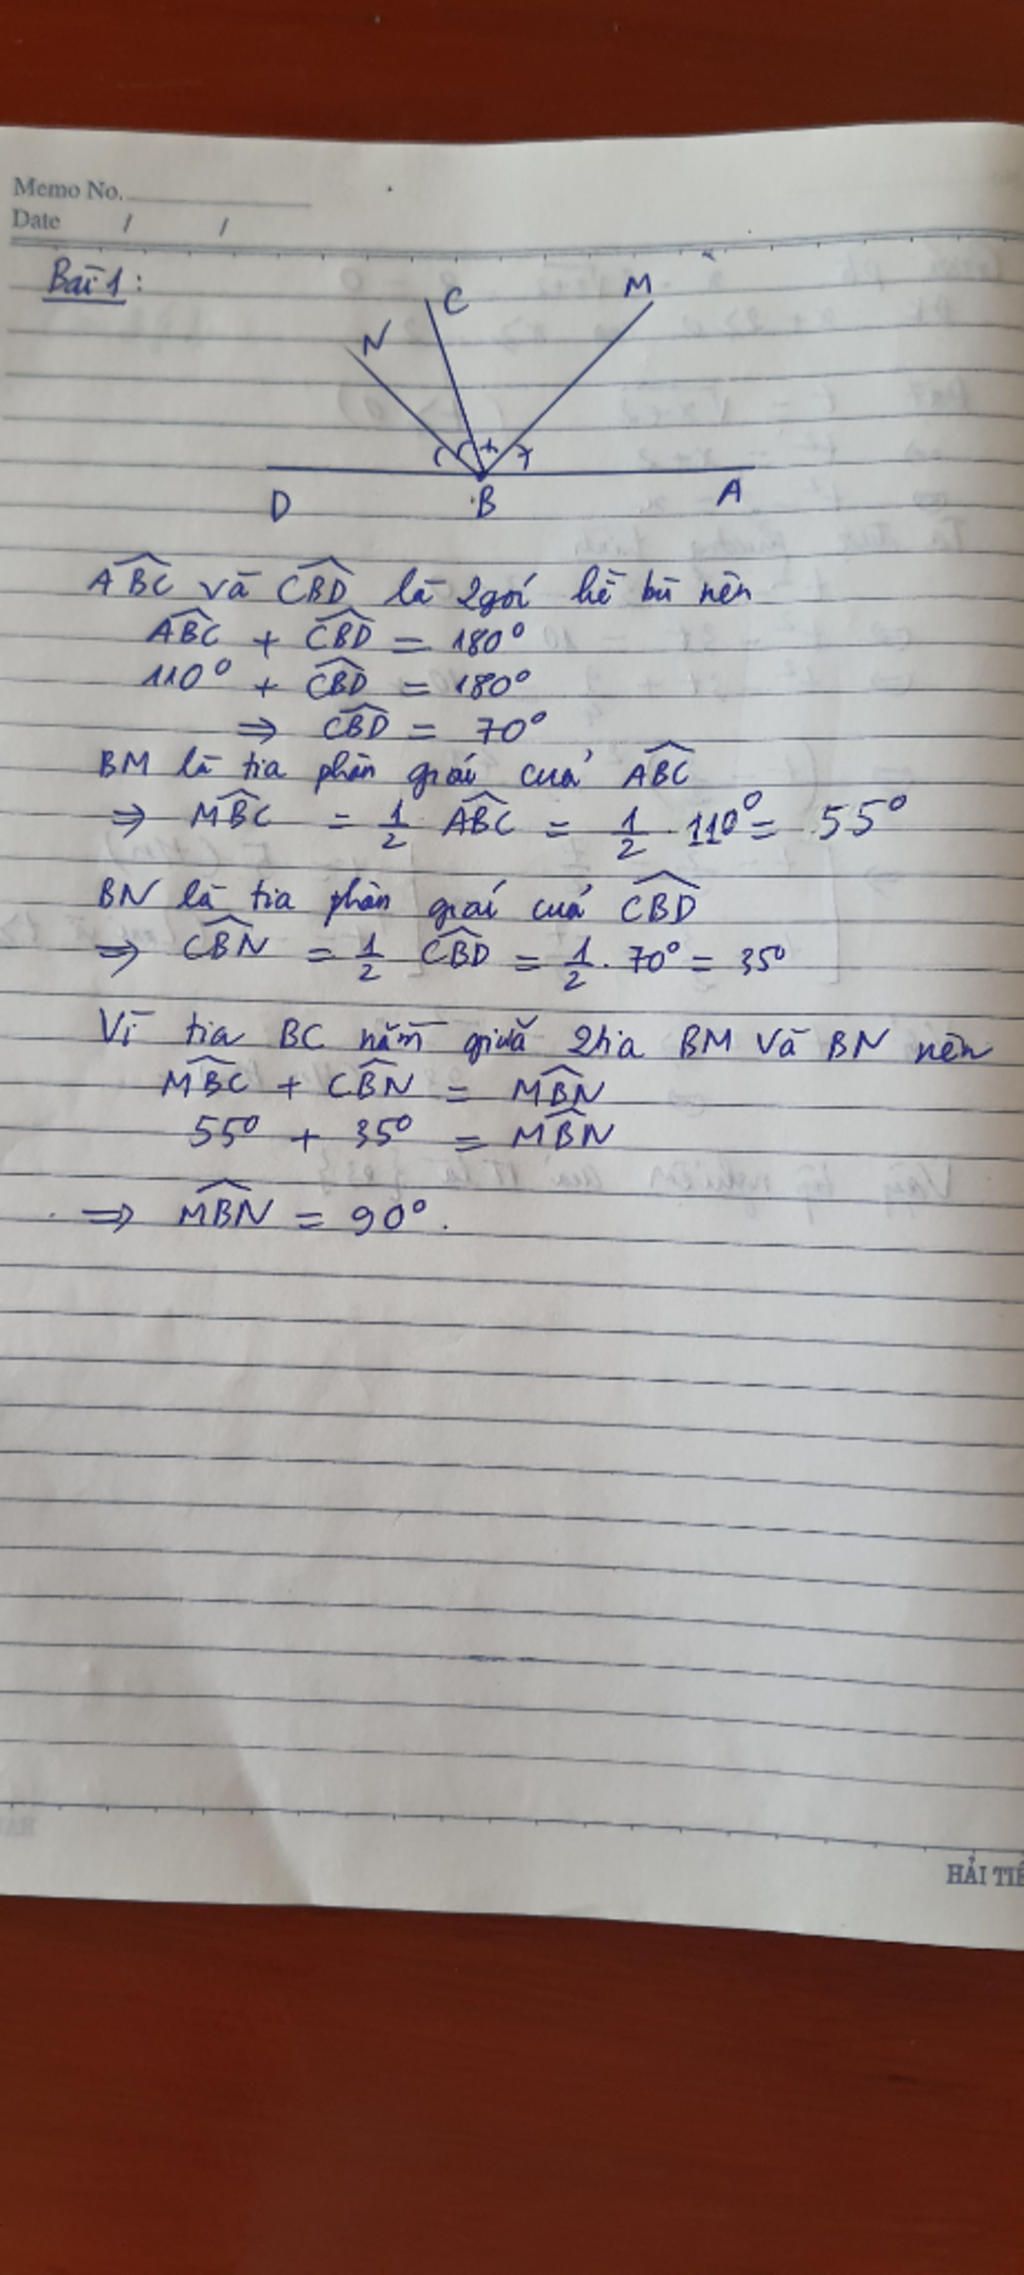 Memo No.
Date / /
Bài 1:
C M
N
D B A
ABC và CBD là 2 gói kề bù nên
ABC + CBD = 180°
110° + CBD = 180°
⇒ CBD = 70°
BM là tia phân giái cuả ABC
⇒ MBC = 1/2 ABC = 1/2 . 110° = 55°
BN là tia phân giái cuả CBD
⇒ CBN = 1/2 CBD = 1/2 . 70° = 35°
Vì tia BC nằm giữa 2 tia BM và BN nên
MBC + CBN = MBN
55° + 35° = MBN
⇒ MBN = 90°.
HẢI TIẾ